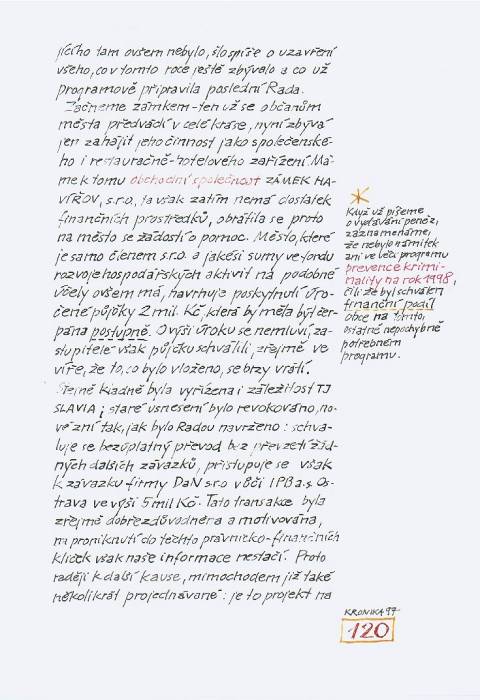 jícího tam ovšem nebylo, šlo spíše o uzavření
všeho, co v tomto roce ještě zbývalo a co už
programově připravila poslední Rada.
Začneme zámkem – ten už se občanům
města předvádí v celé kráse, nyní zbývá
jen zahájit jeho činnost jako společenské-
ho i restauračně-hotelového zařízení. Má-
me k tomu obchodní společnost ZÁMEK HA-
VÍŘOV, s.r.o., ta však zatím nemá dostatek
finančních prostředků, obrátila se proto
na město se žádostí o pomoc. Město, které
je samo členem s.r.o. a jakési sumy ve fondu
rozvoje hospodářských aktivit na podobné
účely ovšem má, navrhuje poskytnutí úro-
čené půjčky 2 mil. Kč, která by měla být čer-
pána postupně. O výši úroku se nemluví, za-
stupitelé však půjčku schválili, zřejmě ve
víře, že to, co bylo vloženo, se brzy vrátí.
Stejně kladně byla vyřízena i záležitost TJ
SLAVIA; staré usnesení bylo revokováno, no-
vé zní tak, jak bylo Radou navrženo: schva-
luje se bezúplatný převod bez převzetí žád-
ných dalších závazků, přistupuje se však
k závazku firmy DaN s.r.o vůči IPB a.s. Os-
trava ve výši 5 mil Kč. Tato transakce byla
zřejmě dobře zdůvodněna a motivována,
na proniknutí do těchto právnicko-finančních
kliček však naše informace nestačí. Proto
raději k další kause, mimochodem již také
několikrát projednávané: je to projekt na
Když už píšeme
o vydávání peněz,
zaznamenáme,
že nebylo námitek
ani ve věci programu
prevence krimi-
nality na rok 1998,
čili že byl schválen
finanční podíl
obce na tomto,
ostatně nepochybně
potřebném
programu.
KRONIKA 97
120